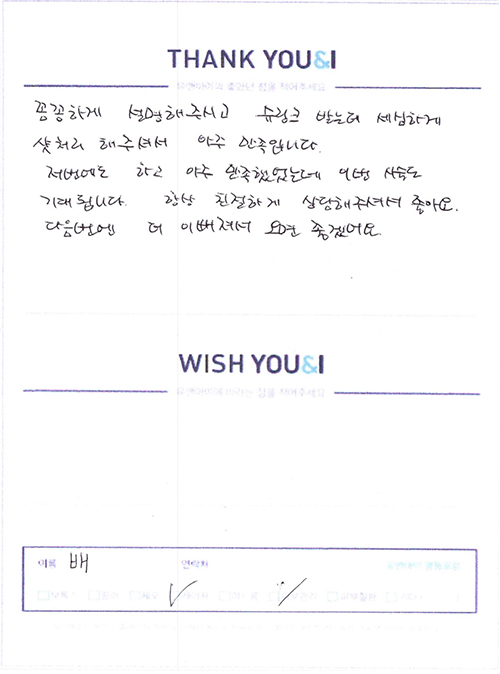 THANK YOU&I
유앤아이의 좋았던 점을 적어주세요
꼼꼼하게 설명해주시고 슈링크 받는데 세심하게
샷처리 해주셔서 아주 만족입니다.
저번에도 하고 아주 만족했었는데 이번 시술도
기대됩니다. 항상 친절하게 상담해주셔서 좋아요.
다음번엔 더 이뻐져서 오면 좋겠어요
WISH YOU&I
유앤아이에 바라는 점을 적어주세요
이름 배 연락처